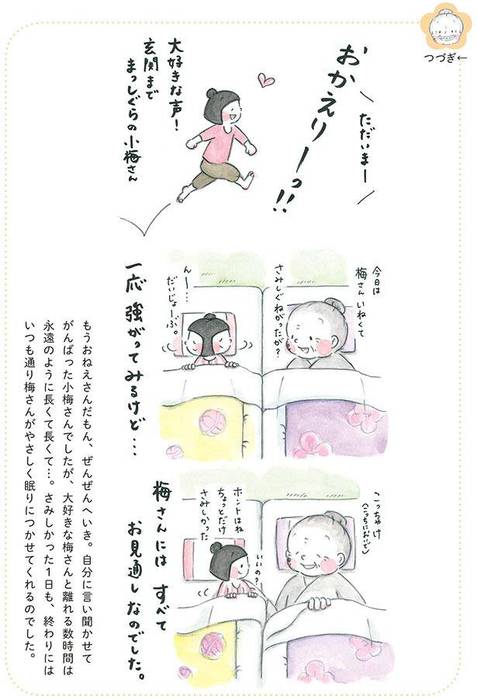 つづき←
＼ただいまー／
おかえりーっ!!
大好きな声！
玄関まで
まっしぐらの小梅さん
今日は
梅さんいねくて
さみしぐねがったが？
んー…
だいじょーぶ。
一応 強がってみるけど…
こっちゃけ
(こっちにおいで)
いいの？
ホントはね
ちょっとだけ
さみしかった
梅さんには すべて
お見通しなのでした。
もうおねえさんだもん、ぜんぜんへいき。自分に言い聞かせて
がんばった小梅さんでしたが、大好きな梅さんと離れる数時間は
永遠のように長くて長くて…。さみしかった1日も、終わりには
いつも通り梅さんがやさしく眠りにつかせてくれるのでした。